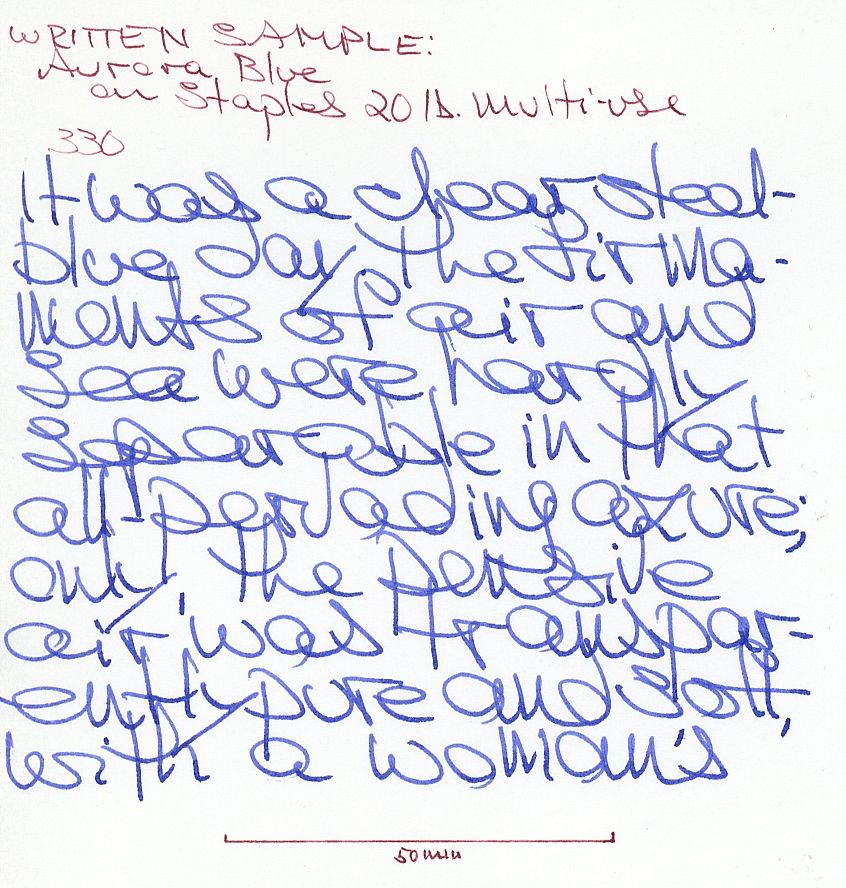 WRITTEN SAMPLE:
Aurora Blue
on Staples 20 lb. Multi-use
330
It was a clear steel-
blue day. The firma-
ments of air and
sea were hardly
separable in that
all-pervading azure;
only, the pensive
air was transpar-
ently pure and soft,
with a woman's
50 mm